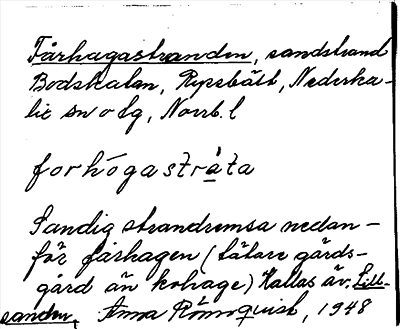 Fårhagastranden, sandstrand
Bodskatan, Rysbält, Nederka-
lix sn o tg, Norrb. l
forhógastràta
Sandig strandremsa nedan-
för fårhagen (tätare gärds-
gård än kohage) Kallas äv. Lill-
sanden, Anna Rönnquist, 1948